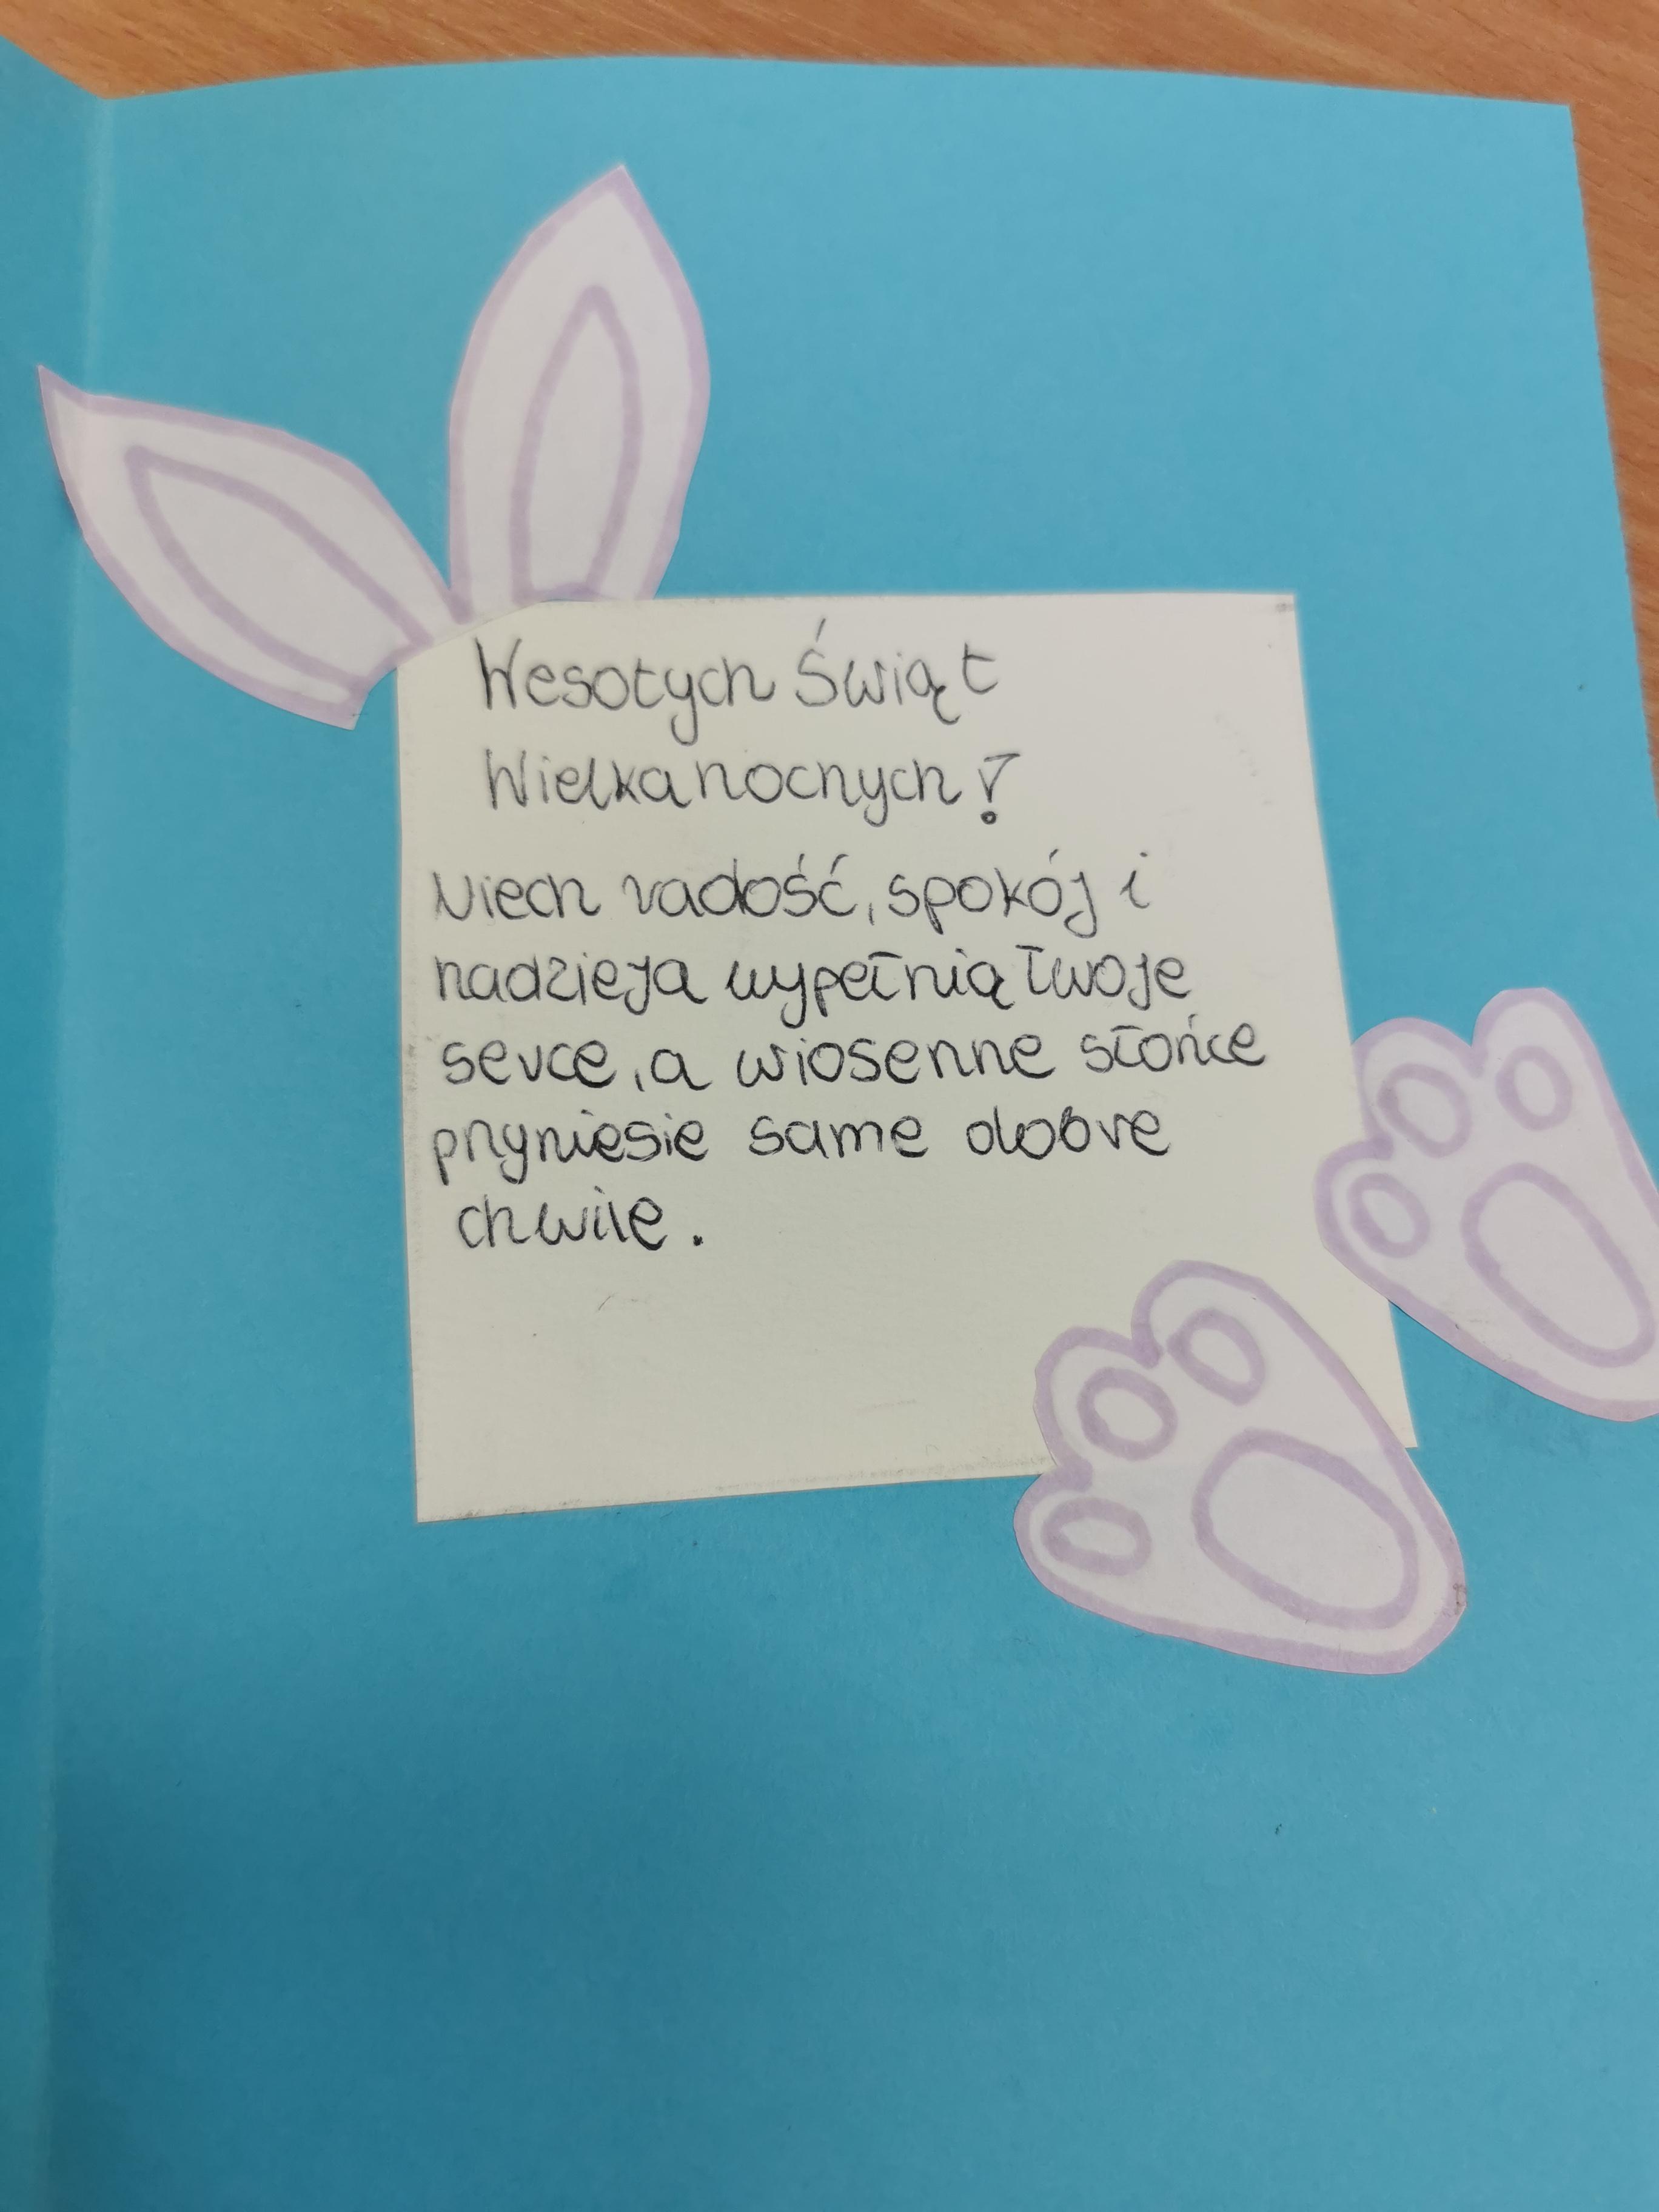 Wesołych Świąt
Wielkanocnych!
Niech radość, spokój i
nadzieja wypełnią twoje
serce, a wiosenne słońce
przyniesie same dobre
chwile.